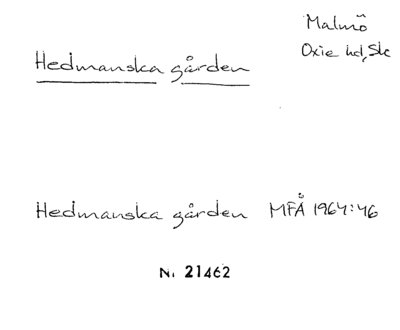 Malmö
Oxie hd, Sk
Hedmanska gården
Hedmanska gården MFÅ 1964:46
Nr 21462